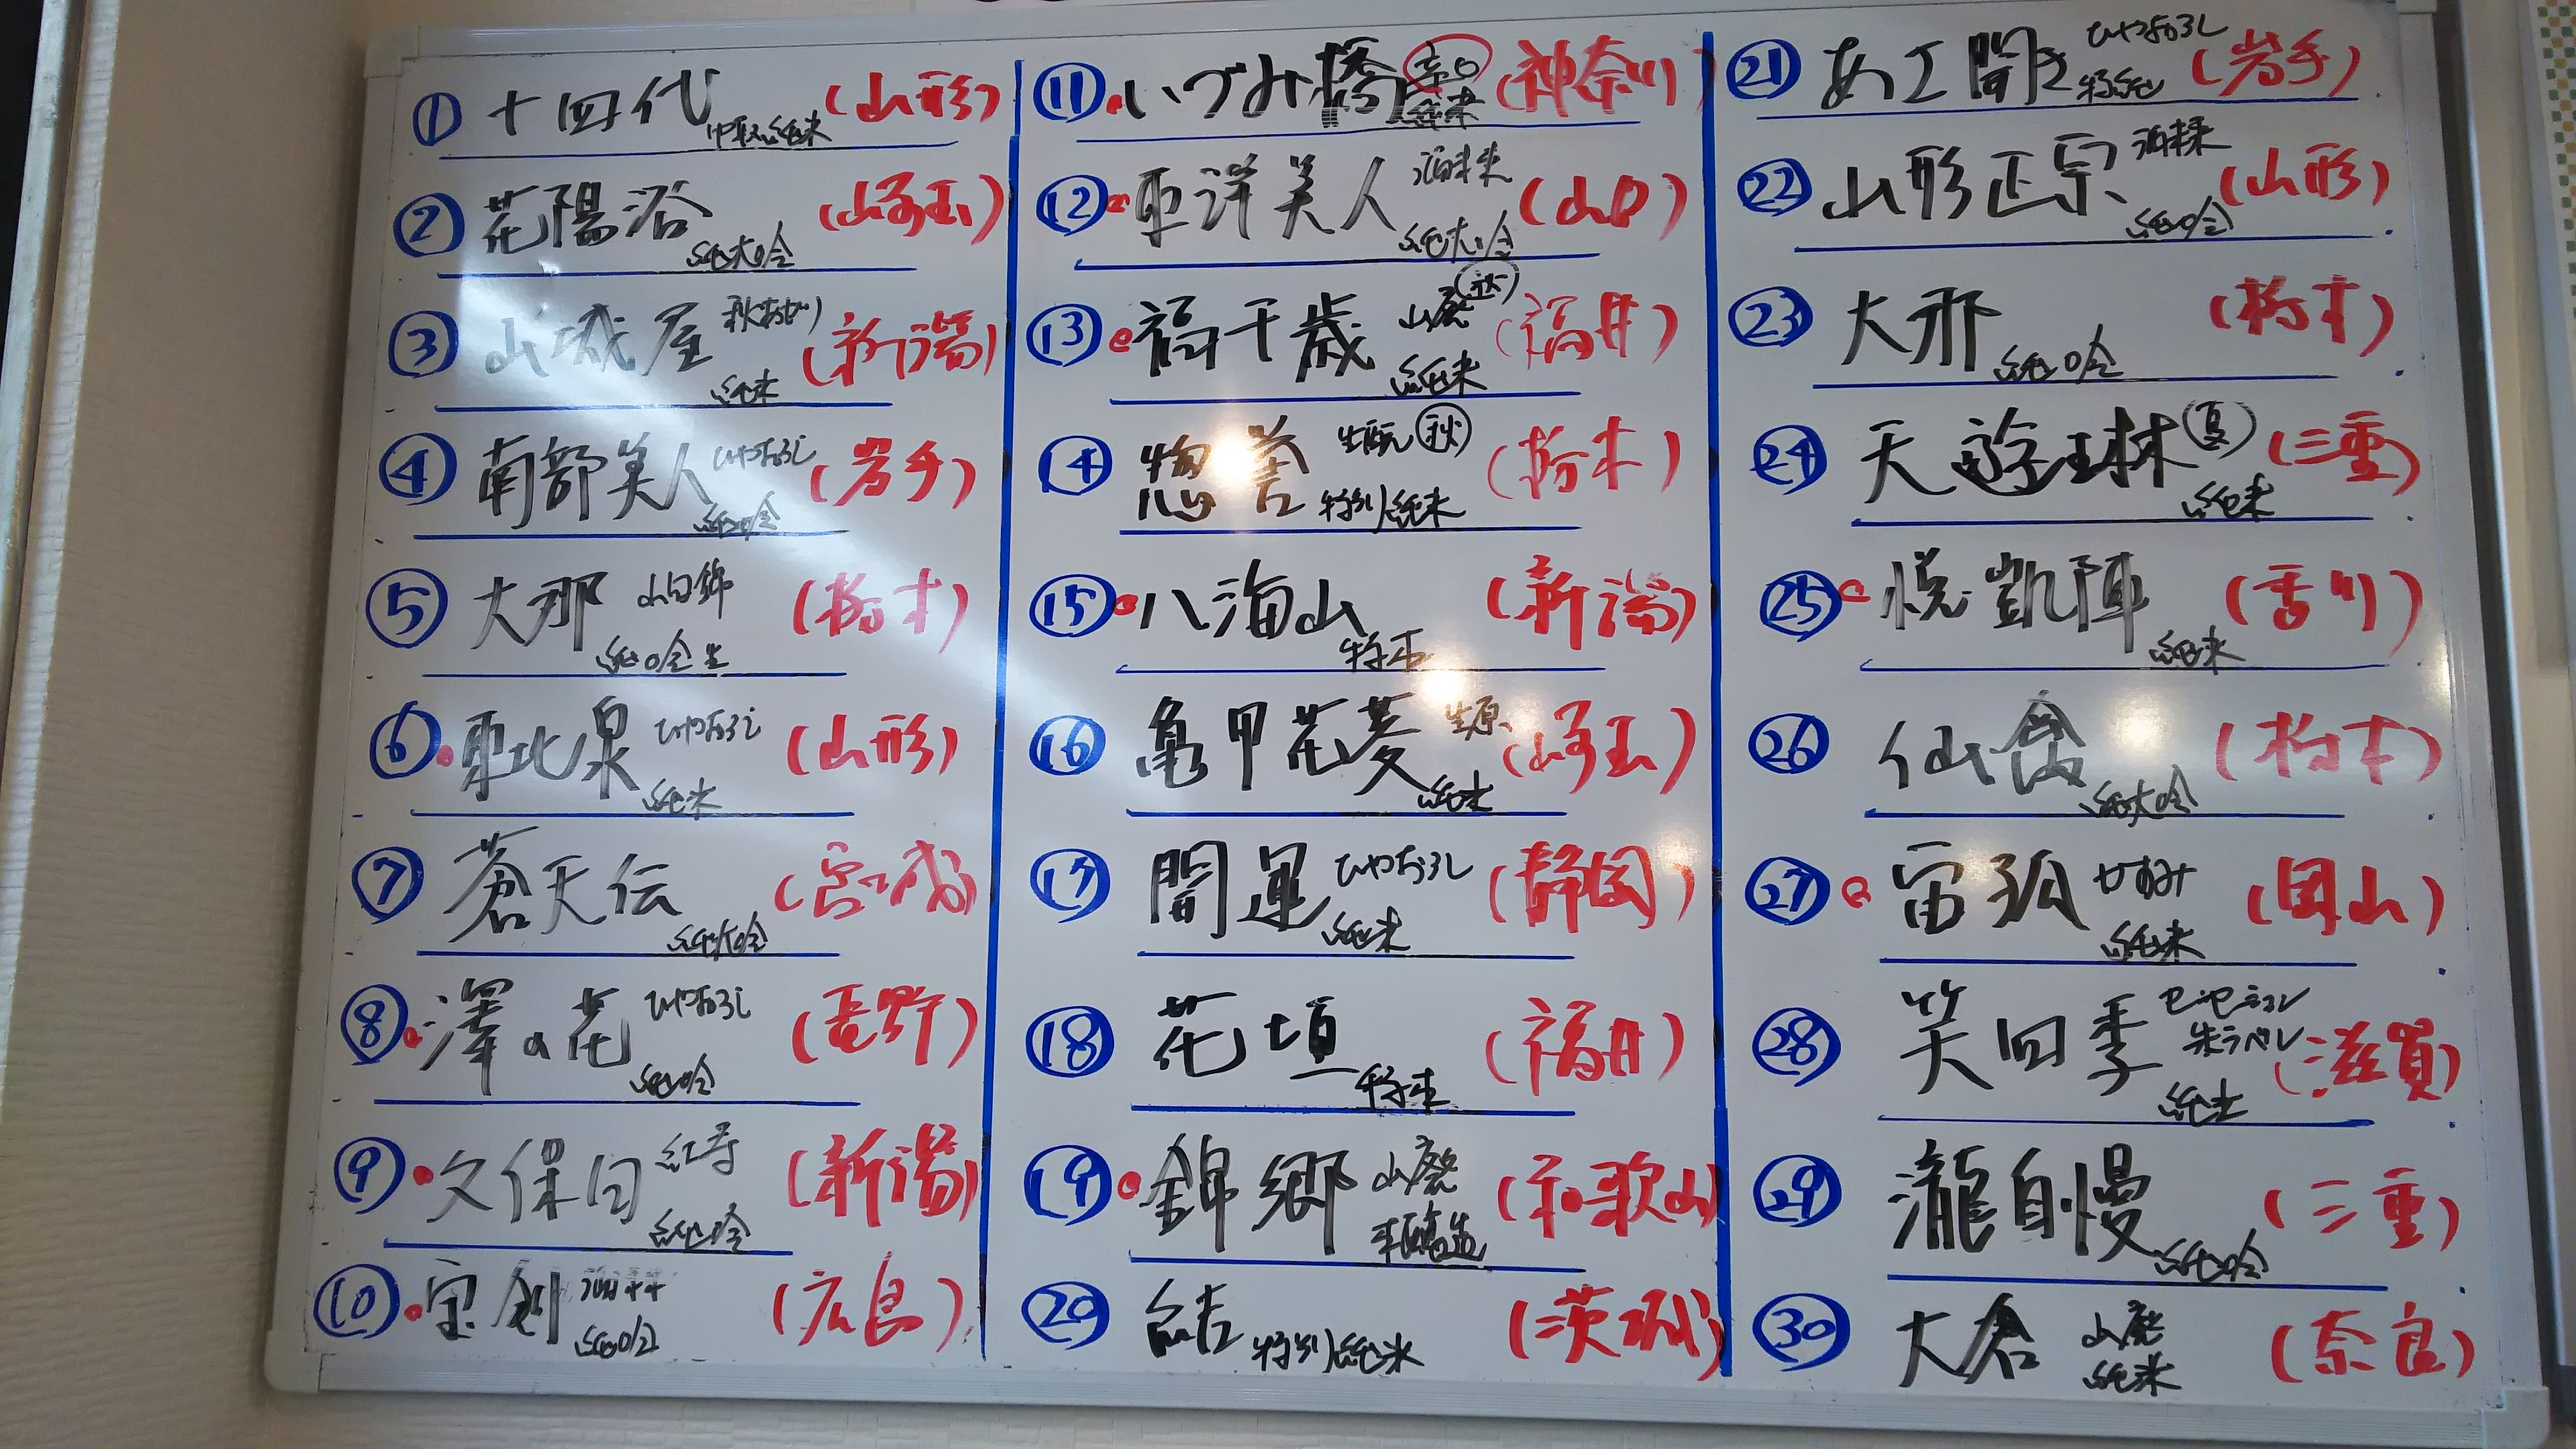 ① 十四代 中取り純米 (山形)
② 花陽浴 純大吟 (埼玉)
③ 山城屋 秋あがり 純米 (新潟)
④ 南部美人 ひやおろし 純吟 (岩手)
⑤ 大那 山田錦 純吟生 (栃木)
⑥ 東北泉 ひやおろし 純米 (山形)
⑦ 蒼天伝 純大吟 (宮城)
⑧ 澤の花 ひやおろし 純吟 (長野)
⑨ 久保田 紅寿 純吟 (新潟)
⑩ 宝剣 純吟 (広島)
⑪ いづみ橋 辛口 純米 (神奈川)
⑫ 東洋美人 酒未来 純大吟 (山口)
⑬ 福千歳 山廃 純米 (福井)
⑭ 惣誉 生酛 秋 特別純米 (栃木)
⑮ 八海山 特本 (新潟)
⑯ 亀甲花菱 生原 純米 (埼玉)
⑰ 開運 ひやおろし 純米 (静岡)
⑱ 花垣 特本 (福井)
⑲ 錦郷 山廃 本醸造 (和歌山)
⑳ 結 特別純米 (茨城)
㉑ あさ開き ひやおろし 特純 (岩手)
㉒ 山形正宗 酒未来 純吟 (山形)
㉓ 大那 純吟 (栃木)
㉔ 天遊琳 夏 純米 (三重)
㉕ 悦凱陣 純米 (香川)
㉖ 仙禽 純大吟 (栃木)
㉗ 宙狐 かすみ 純米 (岡山)
㉘ 笑四季 センセーショナル 朱ラベル 純米 (滋賀)
㉙ 瀧自慢 純吟 (三重)
㉚ 大倉 山廃 純米 (奈良)